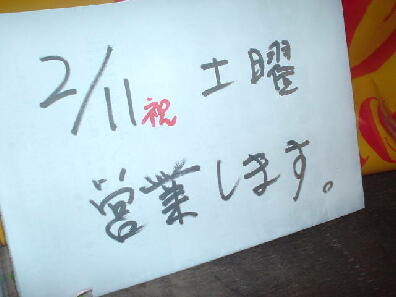 2/11祝 土曜
営業します。